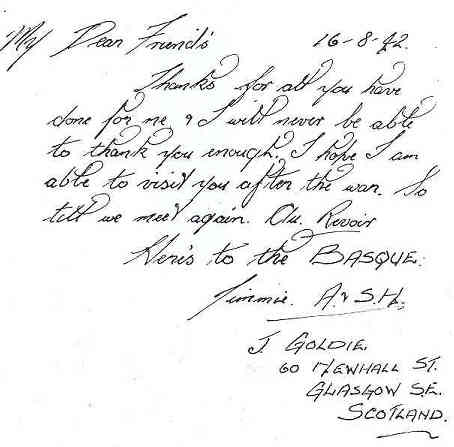 My Dear Friends 16-8-42.
Thanks for all you have
done for me, & I will never be able
to thank you enough. I hope I am
able to visit you after the war. So
till we meet again. Au. Revoir
Here's to the BASQUE.
Jimmie. A. & S.H.
J GOLDIE,
60 NEWHALL ST.
GLASGOW S.E.
SCOTLAND.